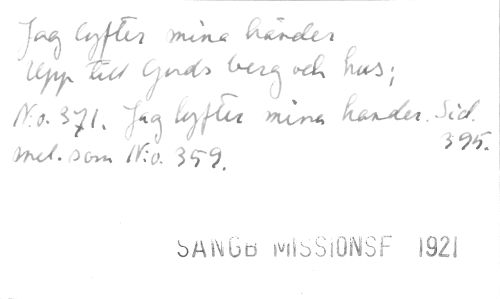 Jag lyfter mina händer
Upp till Guds berg och hus;
N:o. 371. Jag lyfter mina hander. Sid. 395.
mel. som N:o. 359.
SANGB MISSIONSF 1921